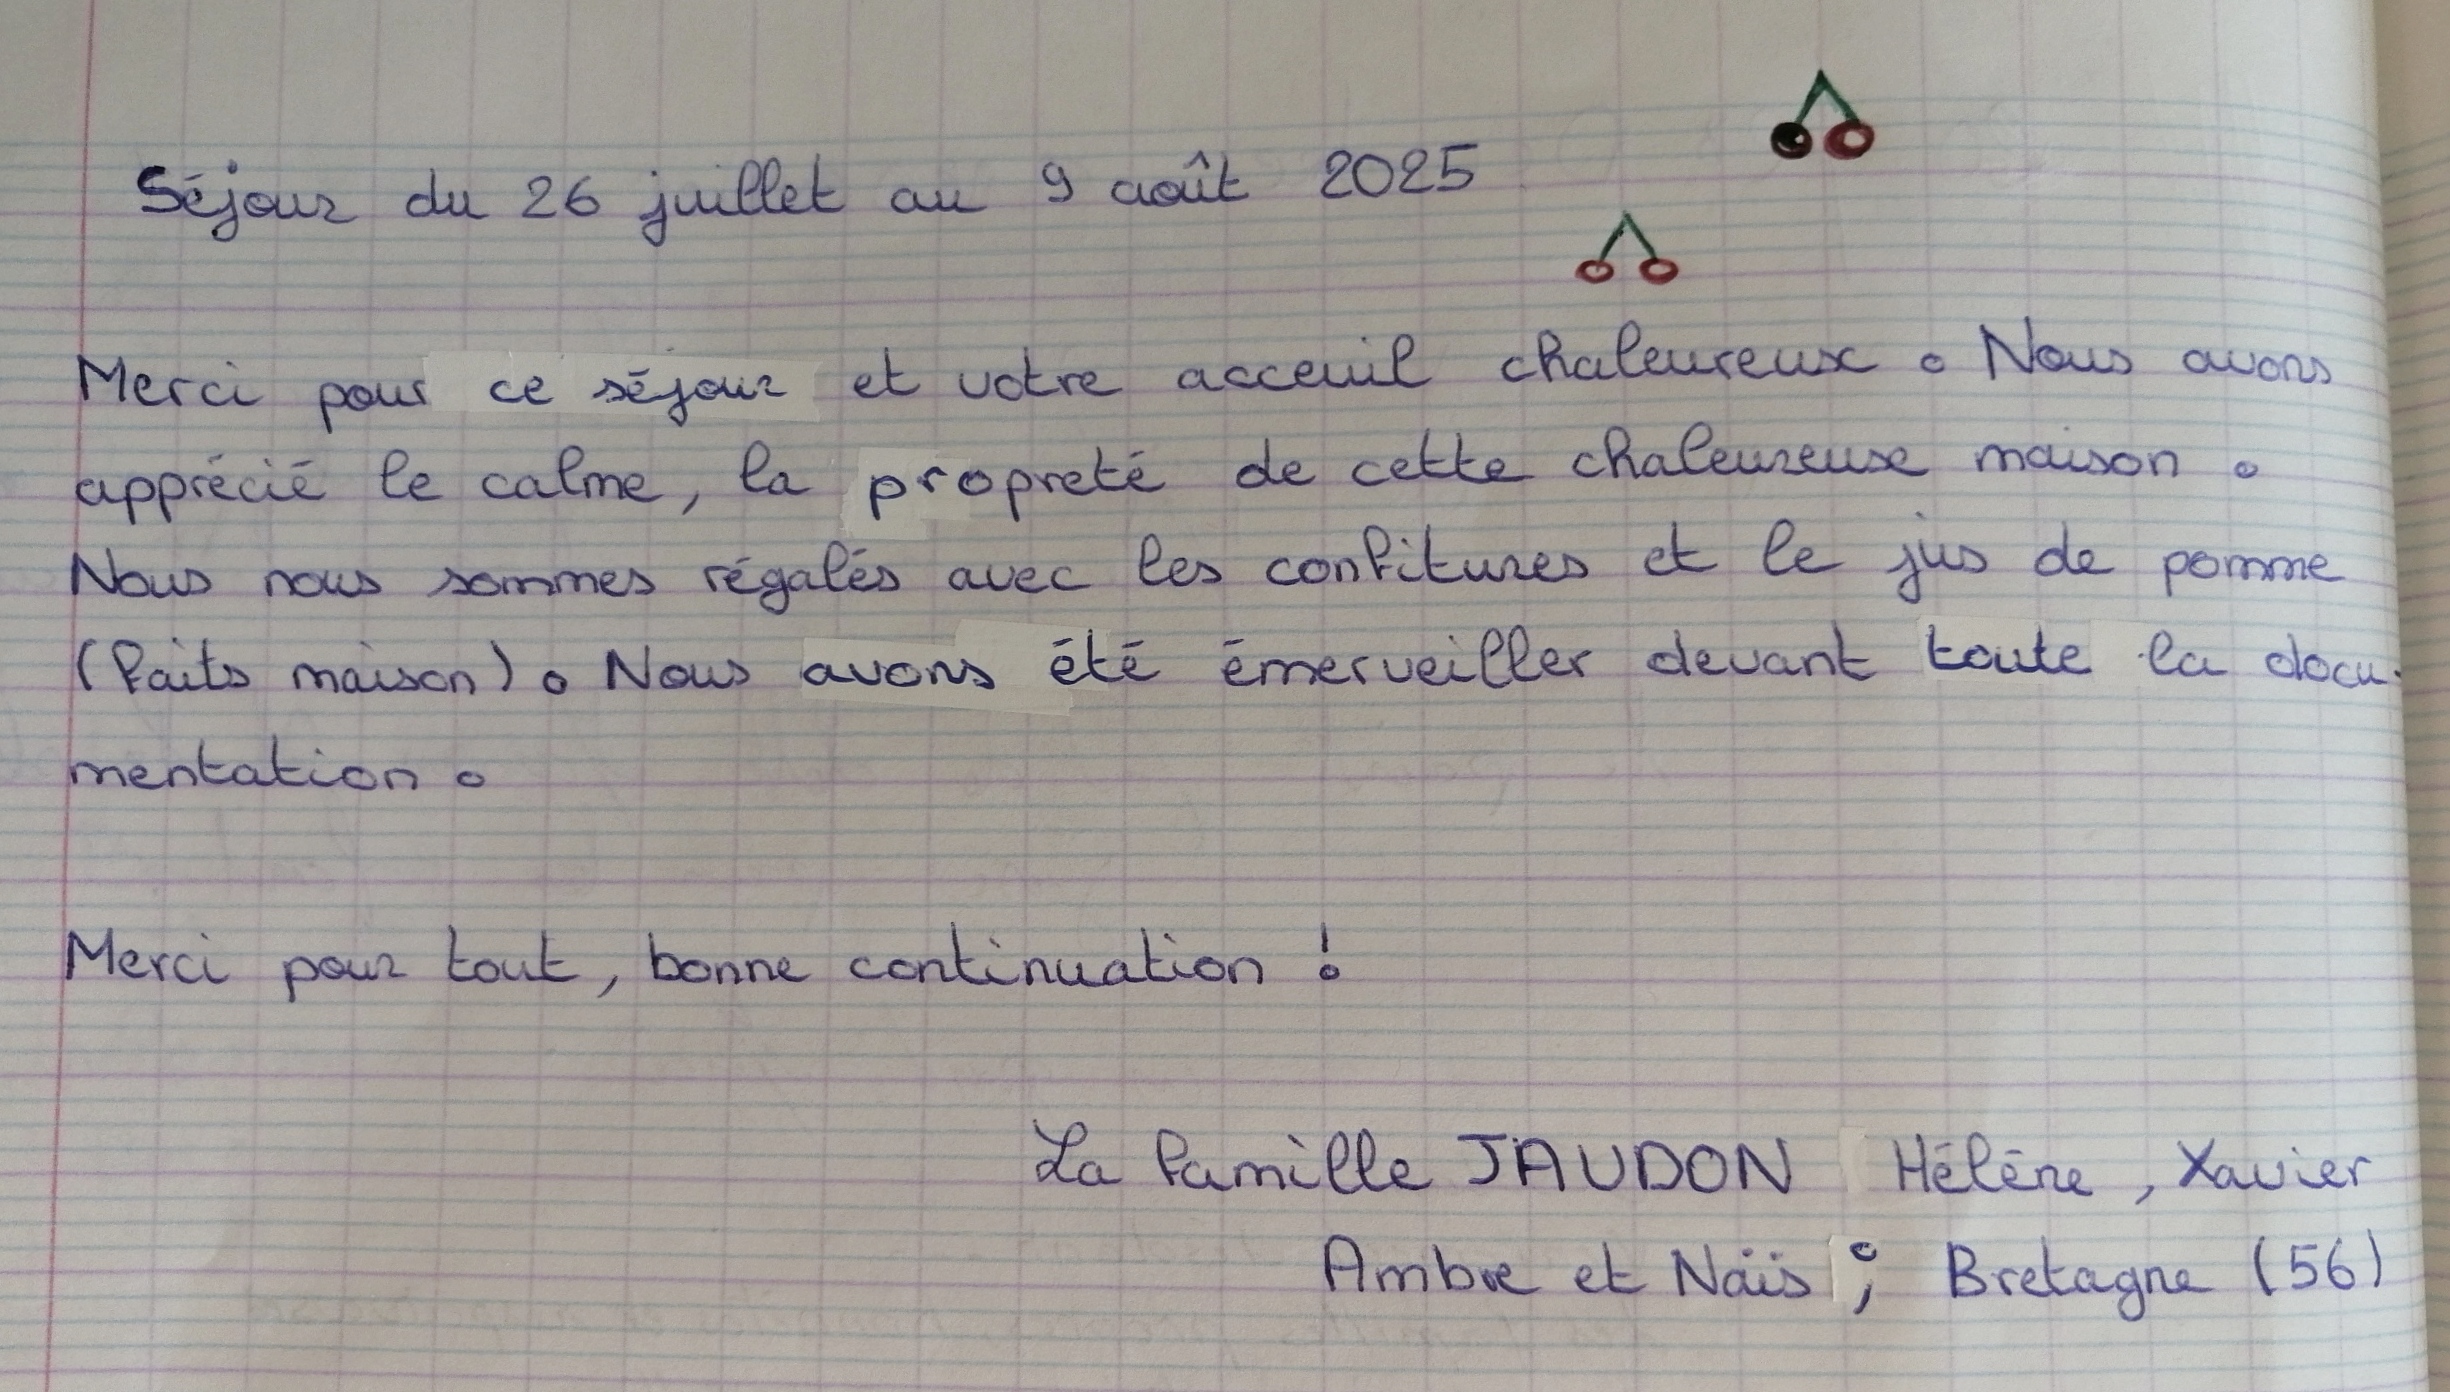 Séjour du 26 juillet au 9 août 2025
Merci pour ce séjour et votre acceuil chaleureux. Nous avons
apprécié le calme, la propreté de cette chaleureuse maison.
Nous nous sommes régalés avec les confitures et le jus de pomme
(faits maison). Nous avons été émerveiller devant toute la docu-
mentation.
Merci pour tout, bonne continuation !
La famille JAUDON Hélène, Xavier
Ambre et Naïs ; Bretagne (56)